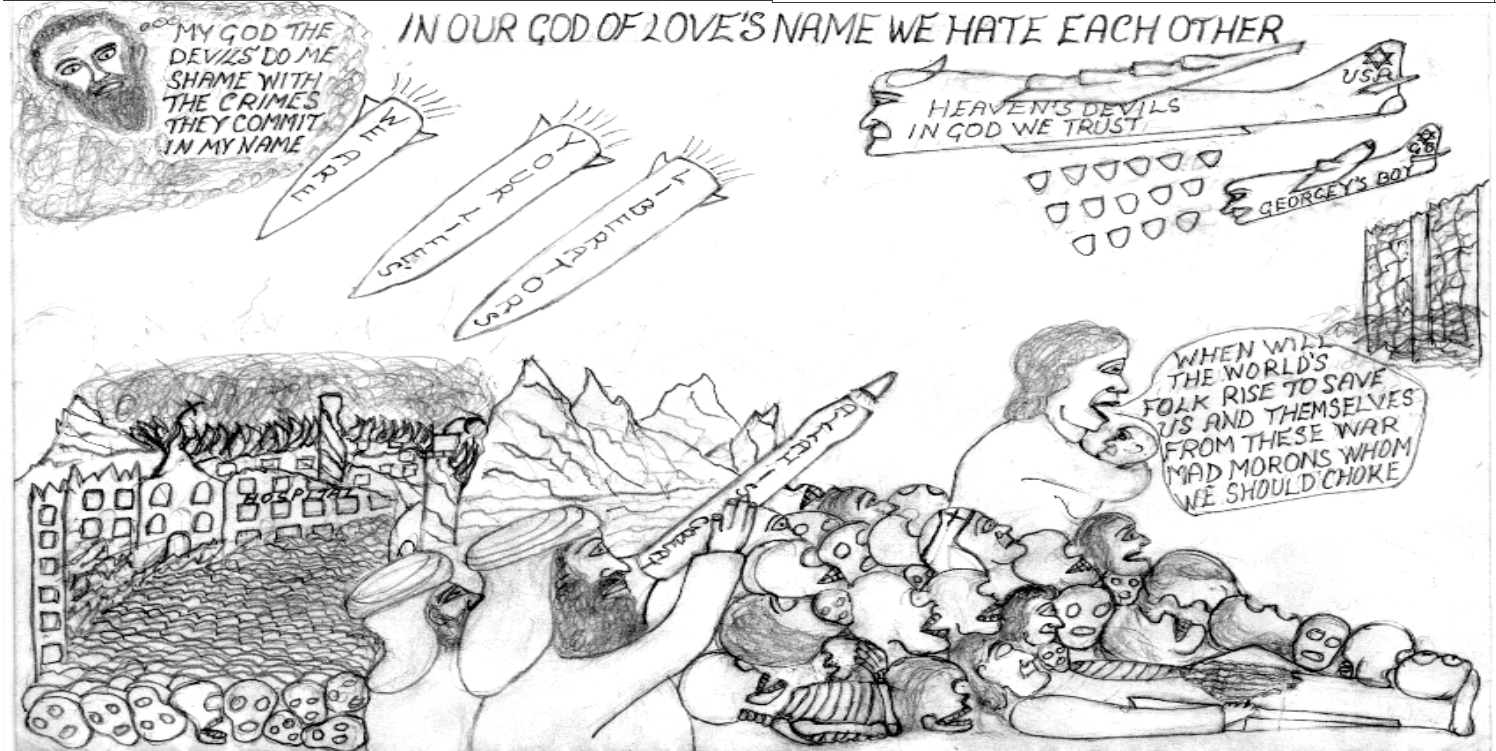 IN OUR GOD OF LOVE'S NAME WE HATE EACH OTHER
MY GOD THE
DEVILS DO ME
SHAME WITH
THE CRIMES
THEY COMMIT
IN MY NAME
WE ARE
YOUR LIFE'S
LIBERATORS
USA
HEAVEN'S DEVILS
IN GOD WE TRUST
GB
GEORGEY'S BOY
WHEN WILL
THE WORLD'S
FOLK RISE TO SAVE
US AND THEMSELVES
FROM THESE WAR
MAD MORONS WHOM
WE SHOULD CHOKE
HOSPITAL
ALLAH IS
GREAT